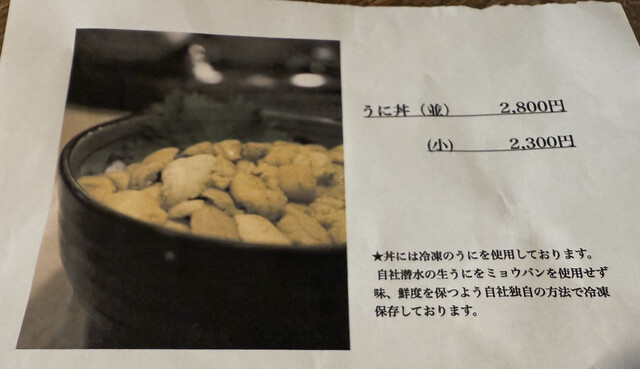 うに丼（並） 2,800円
(小) 2,300円
★丼には冷凍のうにを使用しております。
自社潜水の生うにをミョウバンを使用せず
味、鮮度を保つよう自社独自の方法で冷凍
保存しております。